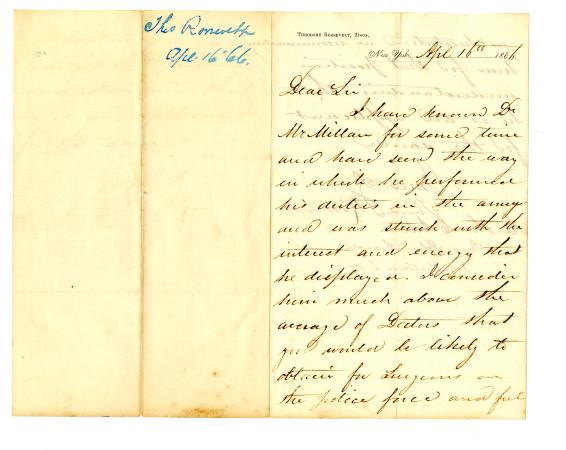 Theo Roosevelt
Apl. 16th 66.
THEODORE ROOSEVELT, TREAS.
New York, Apl 16th 1866
Dear Sir
I have known Dr
McMillan for some time
and have seen the way
in which he performed
his duties in the army
and was struck with the
interest and energy that
he displayed. I consider
him much above the
average of Doctors that
you would be likely to
obtain for Surgeons on
the police force and feel